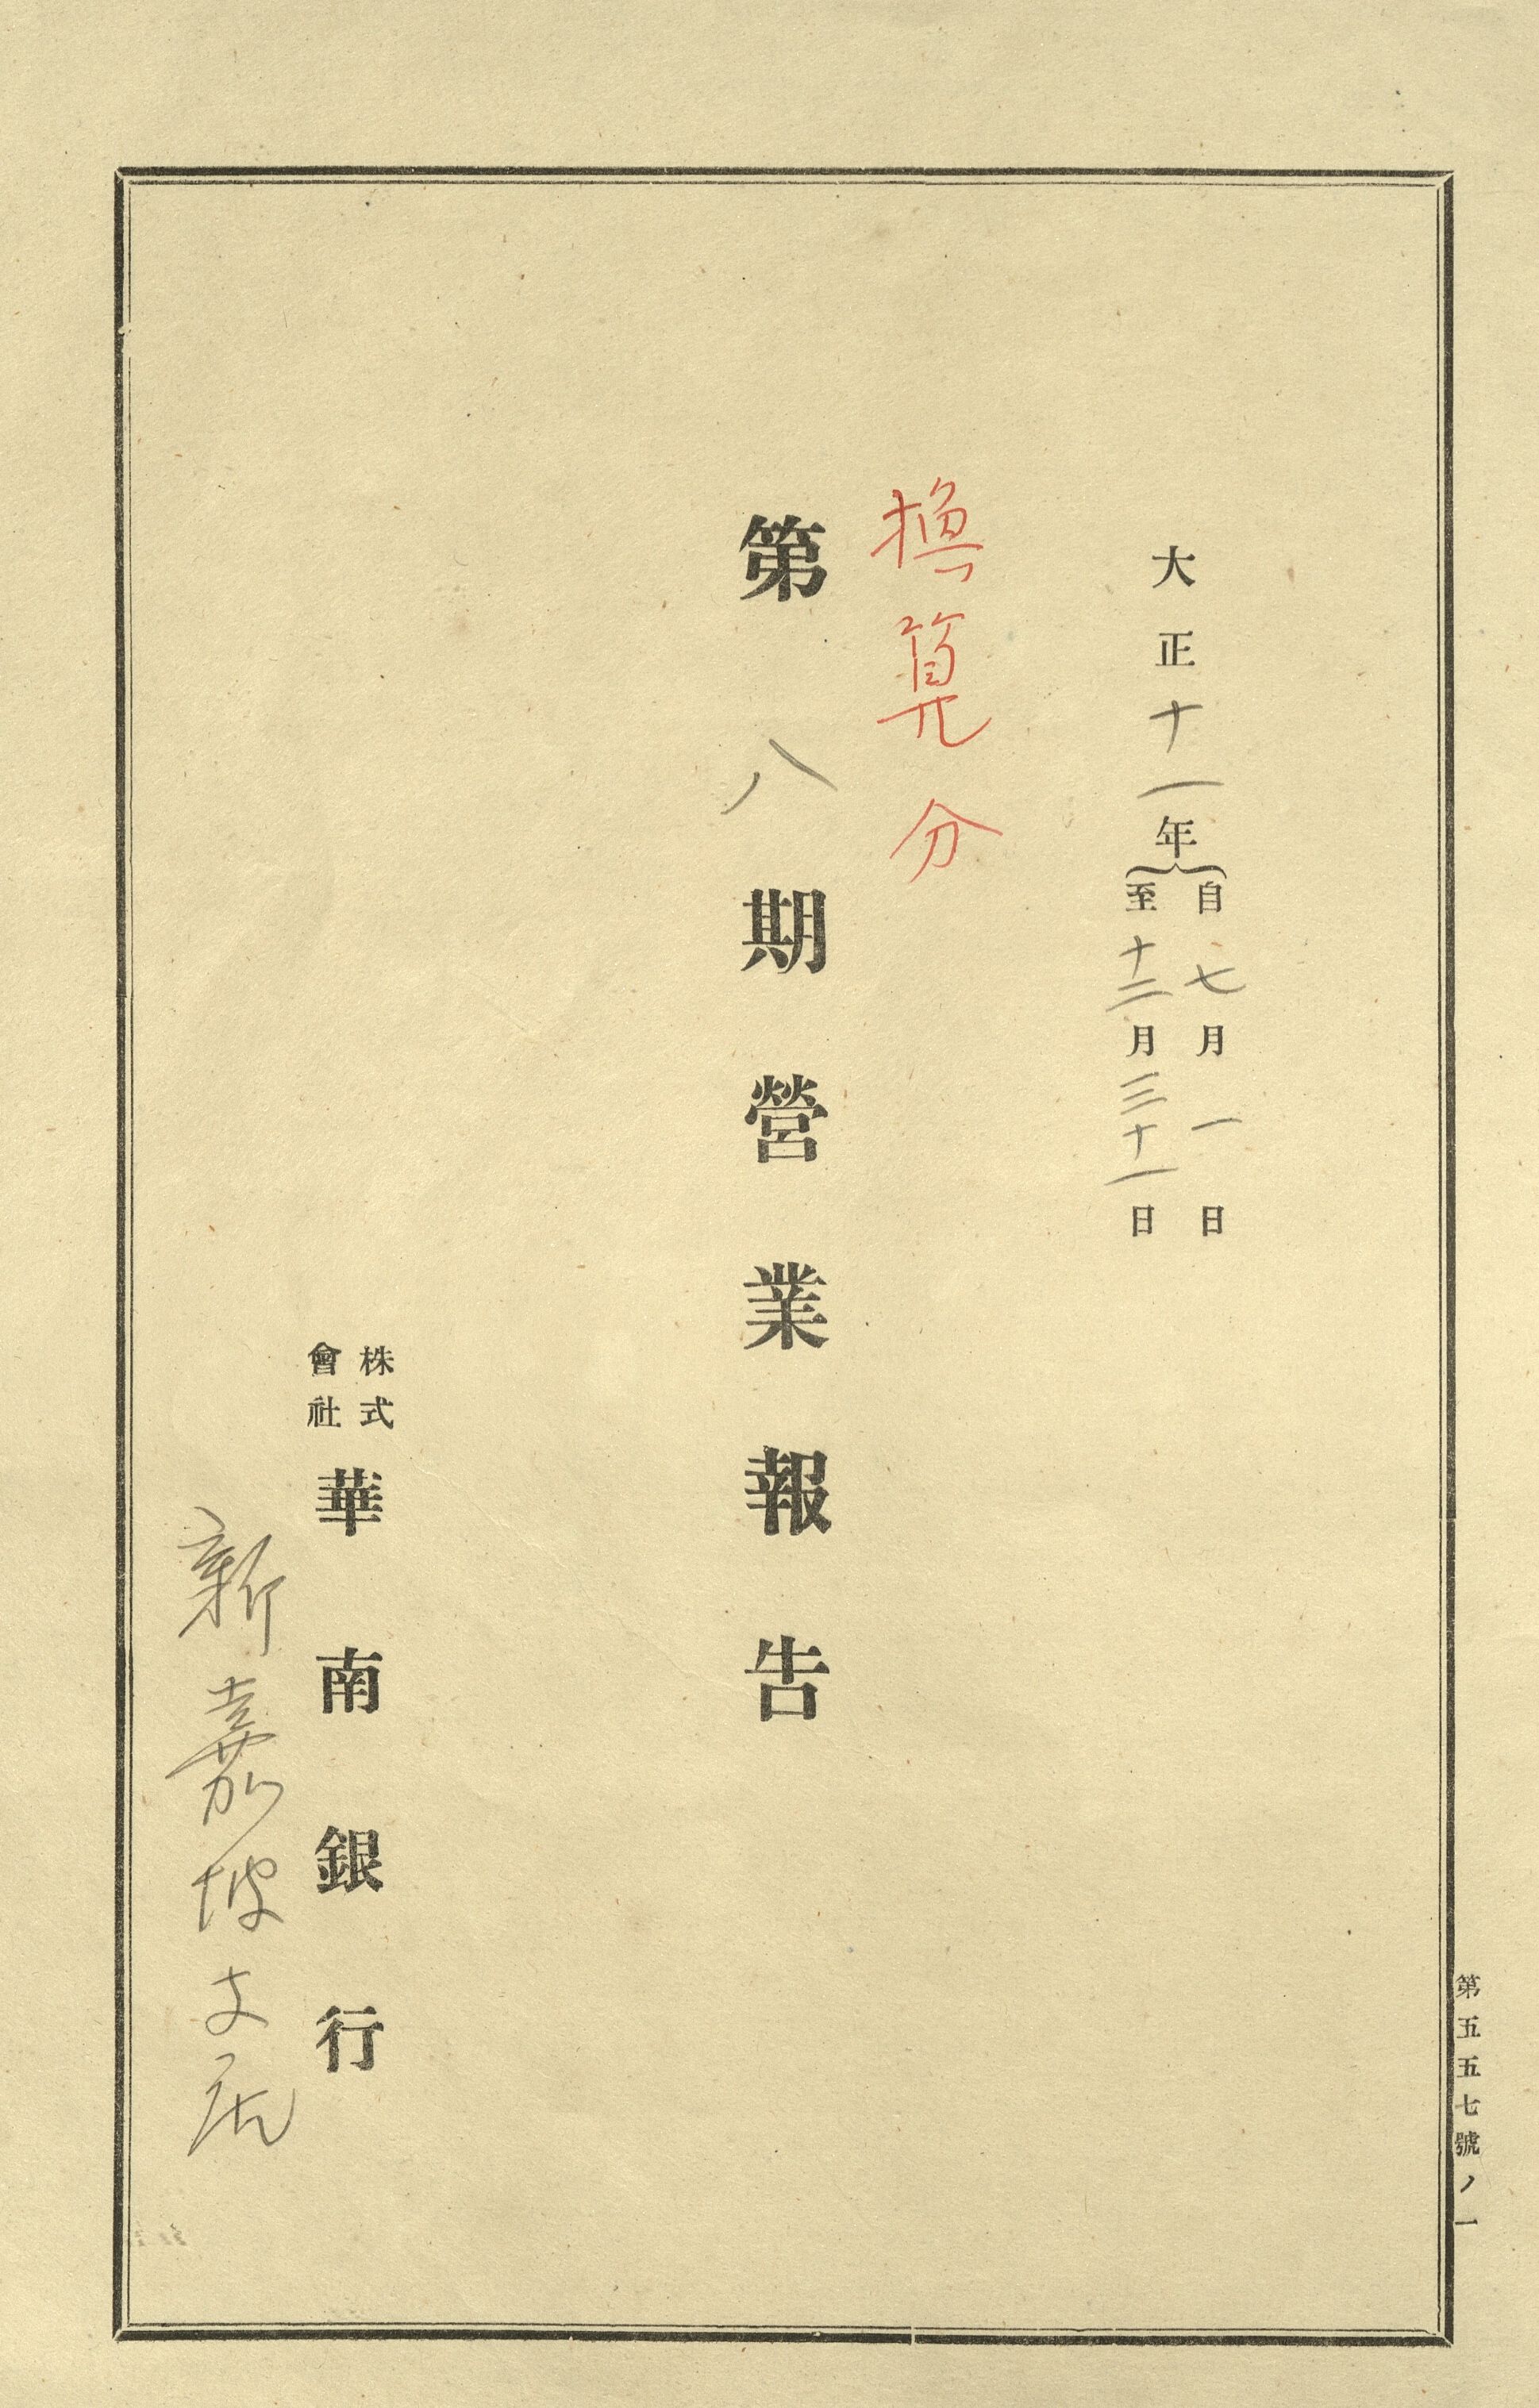 第五五七號ノ一
大正十一年
自七月一日
至十二月三十一日
換算分
第八期營業報告
株式會社華南銀行
新嘉坡支店